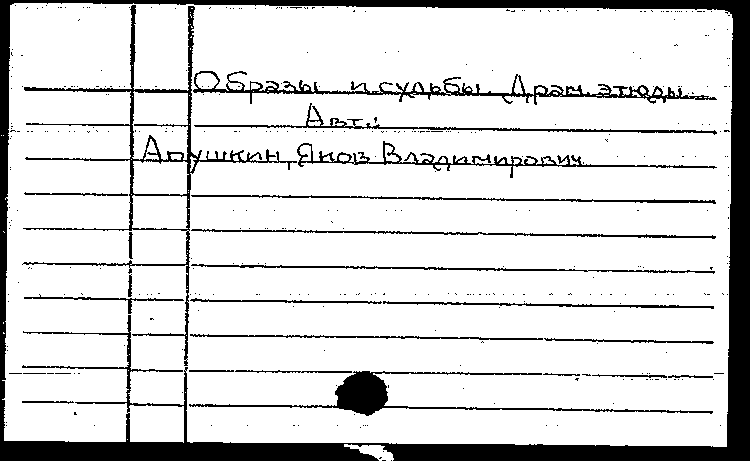 Образы и судьбы. Драм. этюды.
Авт.:
Апушкин, Яков Владимирович